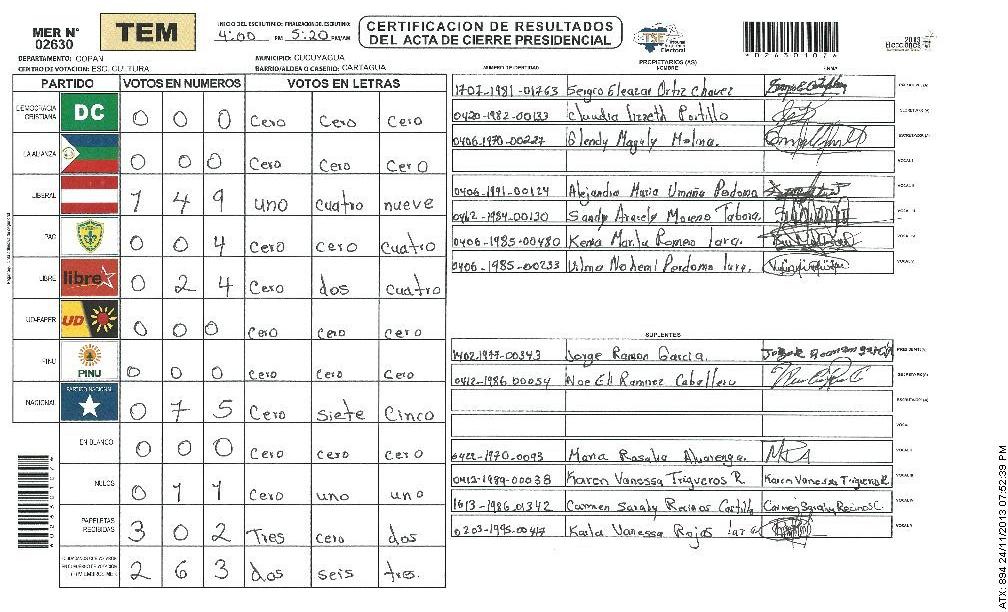 MER N° 02630
TEM
INICIO DEL ESCRUTINIO: 4:00 PM FINALIZACION DEL ESCRUTINIO: 5:20 PM/AM
CERTIFICACION DE RESULTADOS
DEL ACTA DE CIERRE PRESIDENCIAL
TSE
02630107
2013
DEPARTAMENTO: COPAN
MUNICIPIO: CUCUYAGUA
CENTRO DE VOTACION: ESC. CULTURA
BARRIO/ALDEA O CASERIO: CARTAGUA
PARTIDO VOTOS EN NUMEROS VOTOS EN LETRAS
DEMOCRACIA CRISTIANA DC 0 0 0 Cero Cero Cero
LA ALIANZA 0 0 0 Cero Cero Cero
LIBERAL 1 4 9 uno cuatro nueve
PAC 0 0 4 Cero Cero cuatro
LIBRE libre 0 2 4 Cero dos cuatro
UD-FAPER UD 0 0 0 Cero Cero Cero
PINU PINU 0 0 0 Cero Cero Cero
NACIONAL PARTIDO NACIONAL 0 7 5 Cero siete Cinco
EN BLANCO 0 0 0 Cero Cero Cero
NULOS 0 1 1 Cero uno uno
PAPELETAS RECIBIDAS 3 0 2 Tres cero dos
2 6 3 dos seis tres.
PROPIETARIOS (AS)
NUMERO DE IDENTIDAD NOMBRE FIRMA
1707-1981-01763 Sergio Eleazar Ortiz Chavez
0420-1982-00133 Claudia Lizzeth Portillo
0406-1970-00227 Glendy Magaly Molina.
0406-1991-00124 Alejandra Maria Umaña Perdomo
0412-1984-00120 Sandy Aracely Moreno Tabora.
0406-1985-00480 Kenia Marila Romero Lara.
0406-1985-00233 Vilma Nohemi Perdomo Lara.
SUPLENTES
1402-1977-00343 Jorge Ramon Garcia.
0412-1986-00054 Noe Eli Ramirez Caballero
0422-1970-0093 Maria Rosalia Alvarenga.
0412-1989-00038 Karen Vanessa Trigueros R. Karen Vanessa Trigueros R.
1613-1986-01342 Carmen Saraby Recinos Castillo Carmen Saraby Recinos C.
0203-1995-00417 Karla Vanessa Rojas Lara
ATX: 894 24/11/2013 07:52:39 PM